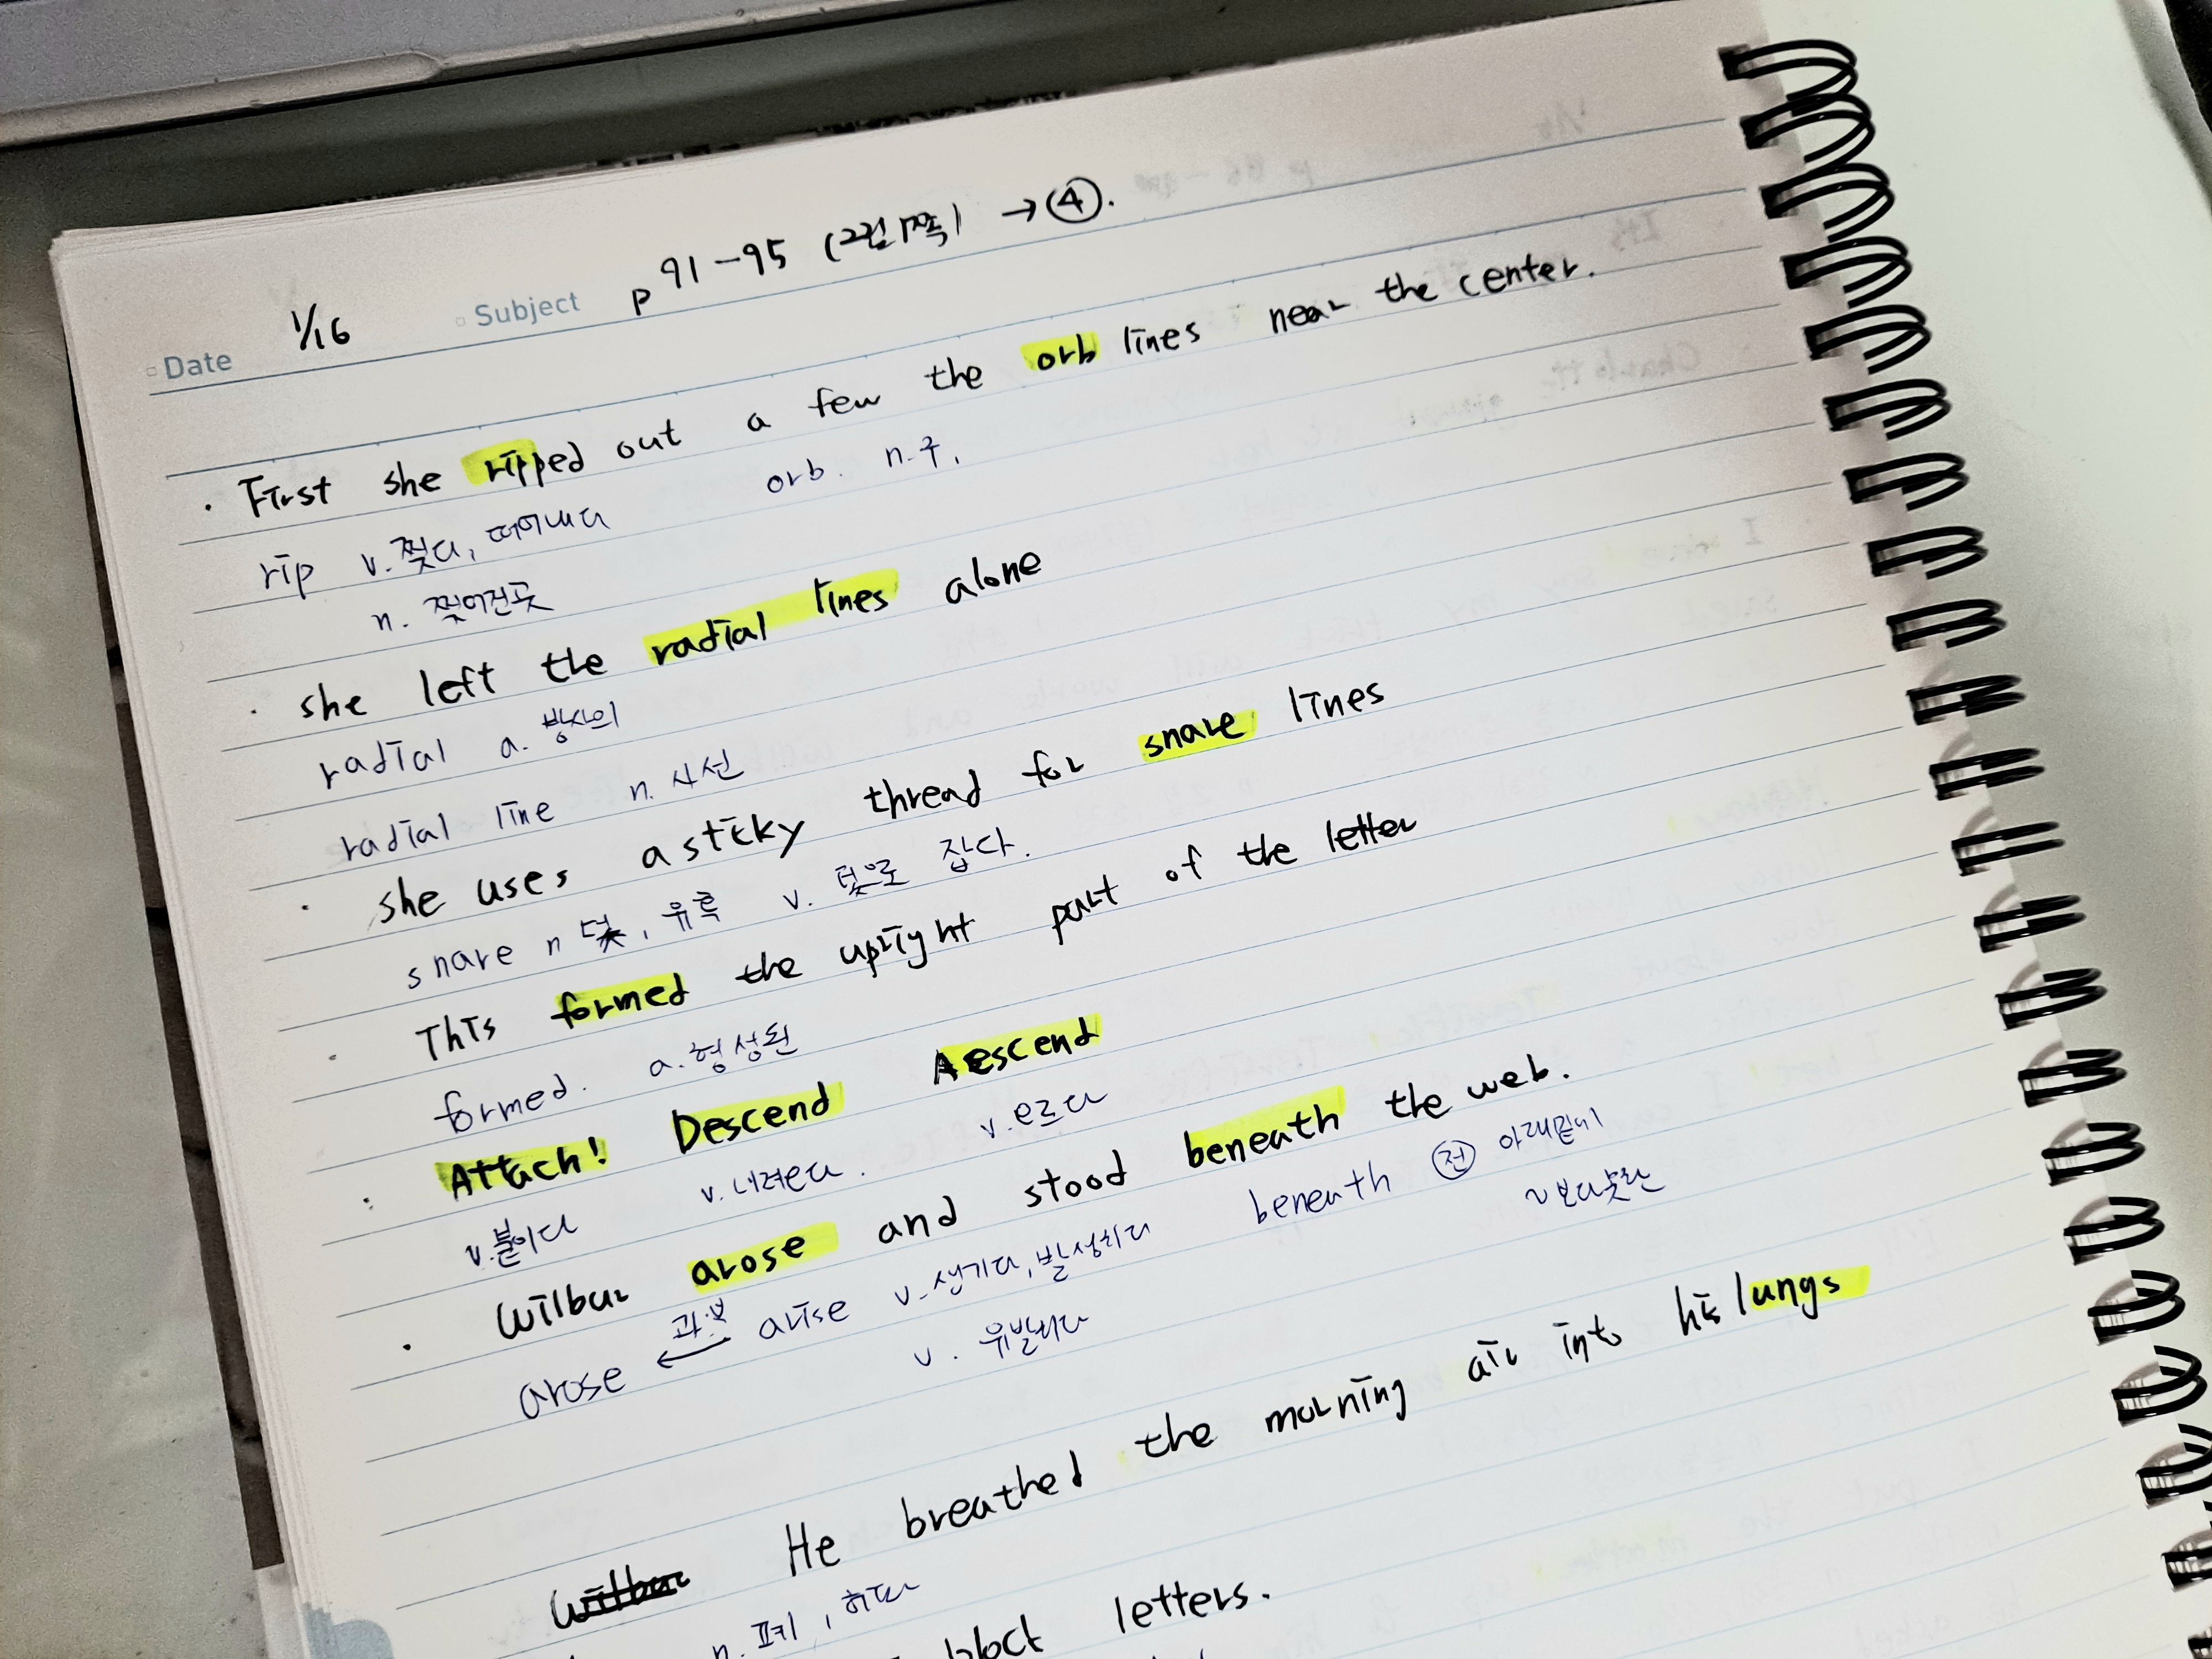 Date 1/16 Subject p 91-95 (그림 1쪽) → ④.
· First she ripped out a few the orb lines near the center.
rip v. 찢다, 떼어내다 orb. n. 구,
n. 찢어진곳
· she left the radial lines alone
radial a. 방사의
radial line n. 사선
· she uses a sticky thread for snare lines
snare n 덫, 유혹 v. 덫으로 잡다.
· This formed the upright part of the letter
formed. a. 형성된
· Attach! Descend Aescend
v. 붙이다 v. 내려오다. v. 오르다
· Wilbur arose and stood beneath the web.
arose ← arise v. 생기다, 발생하다 beneath 전 아래밑에
v. 유발하다 ~보다낮은
He breathed the morning air into his lungs
n. 폐,
block letters.